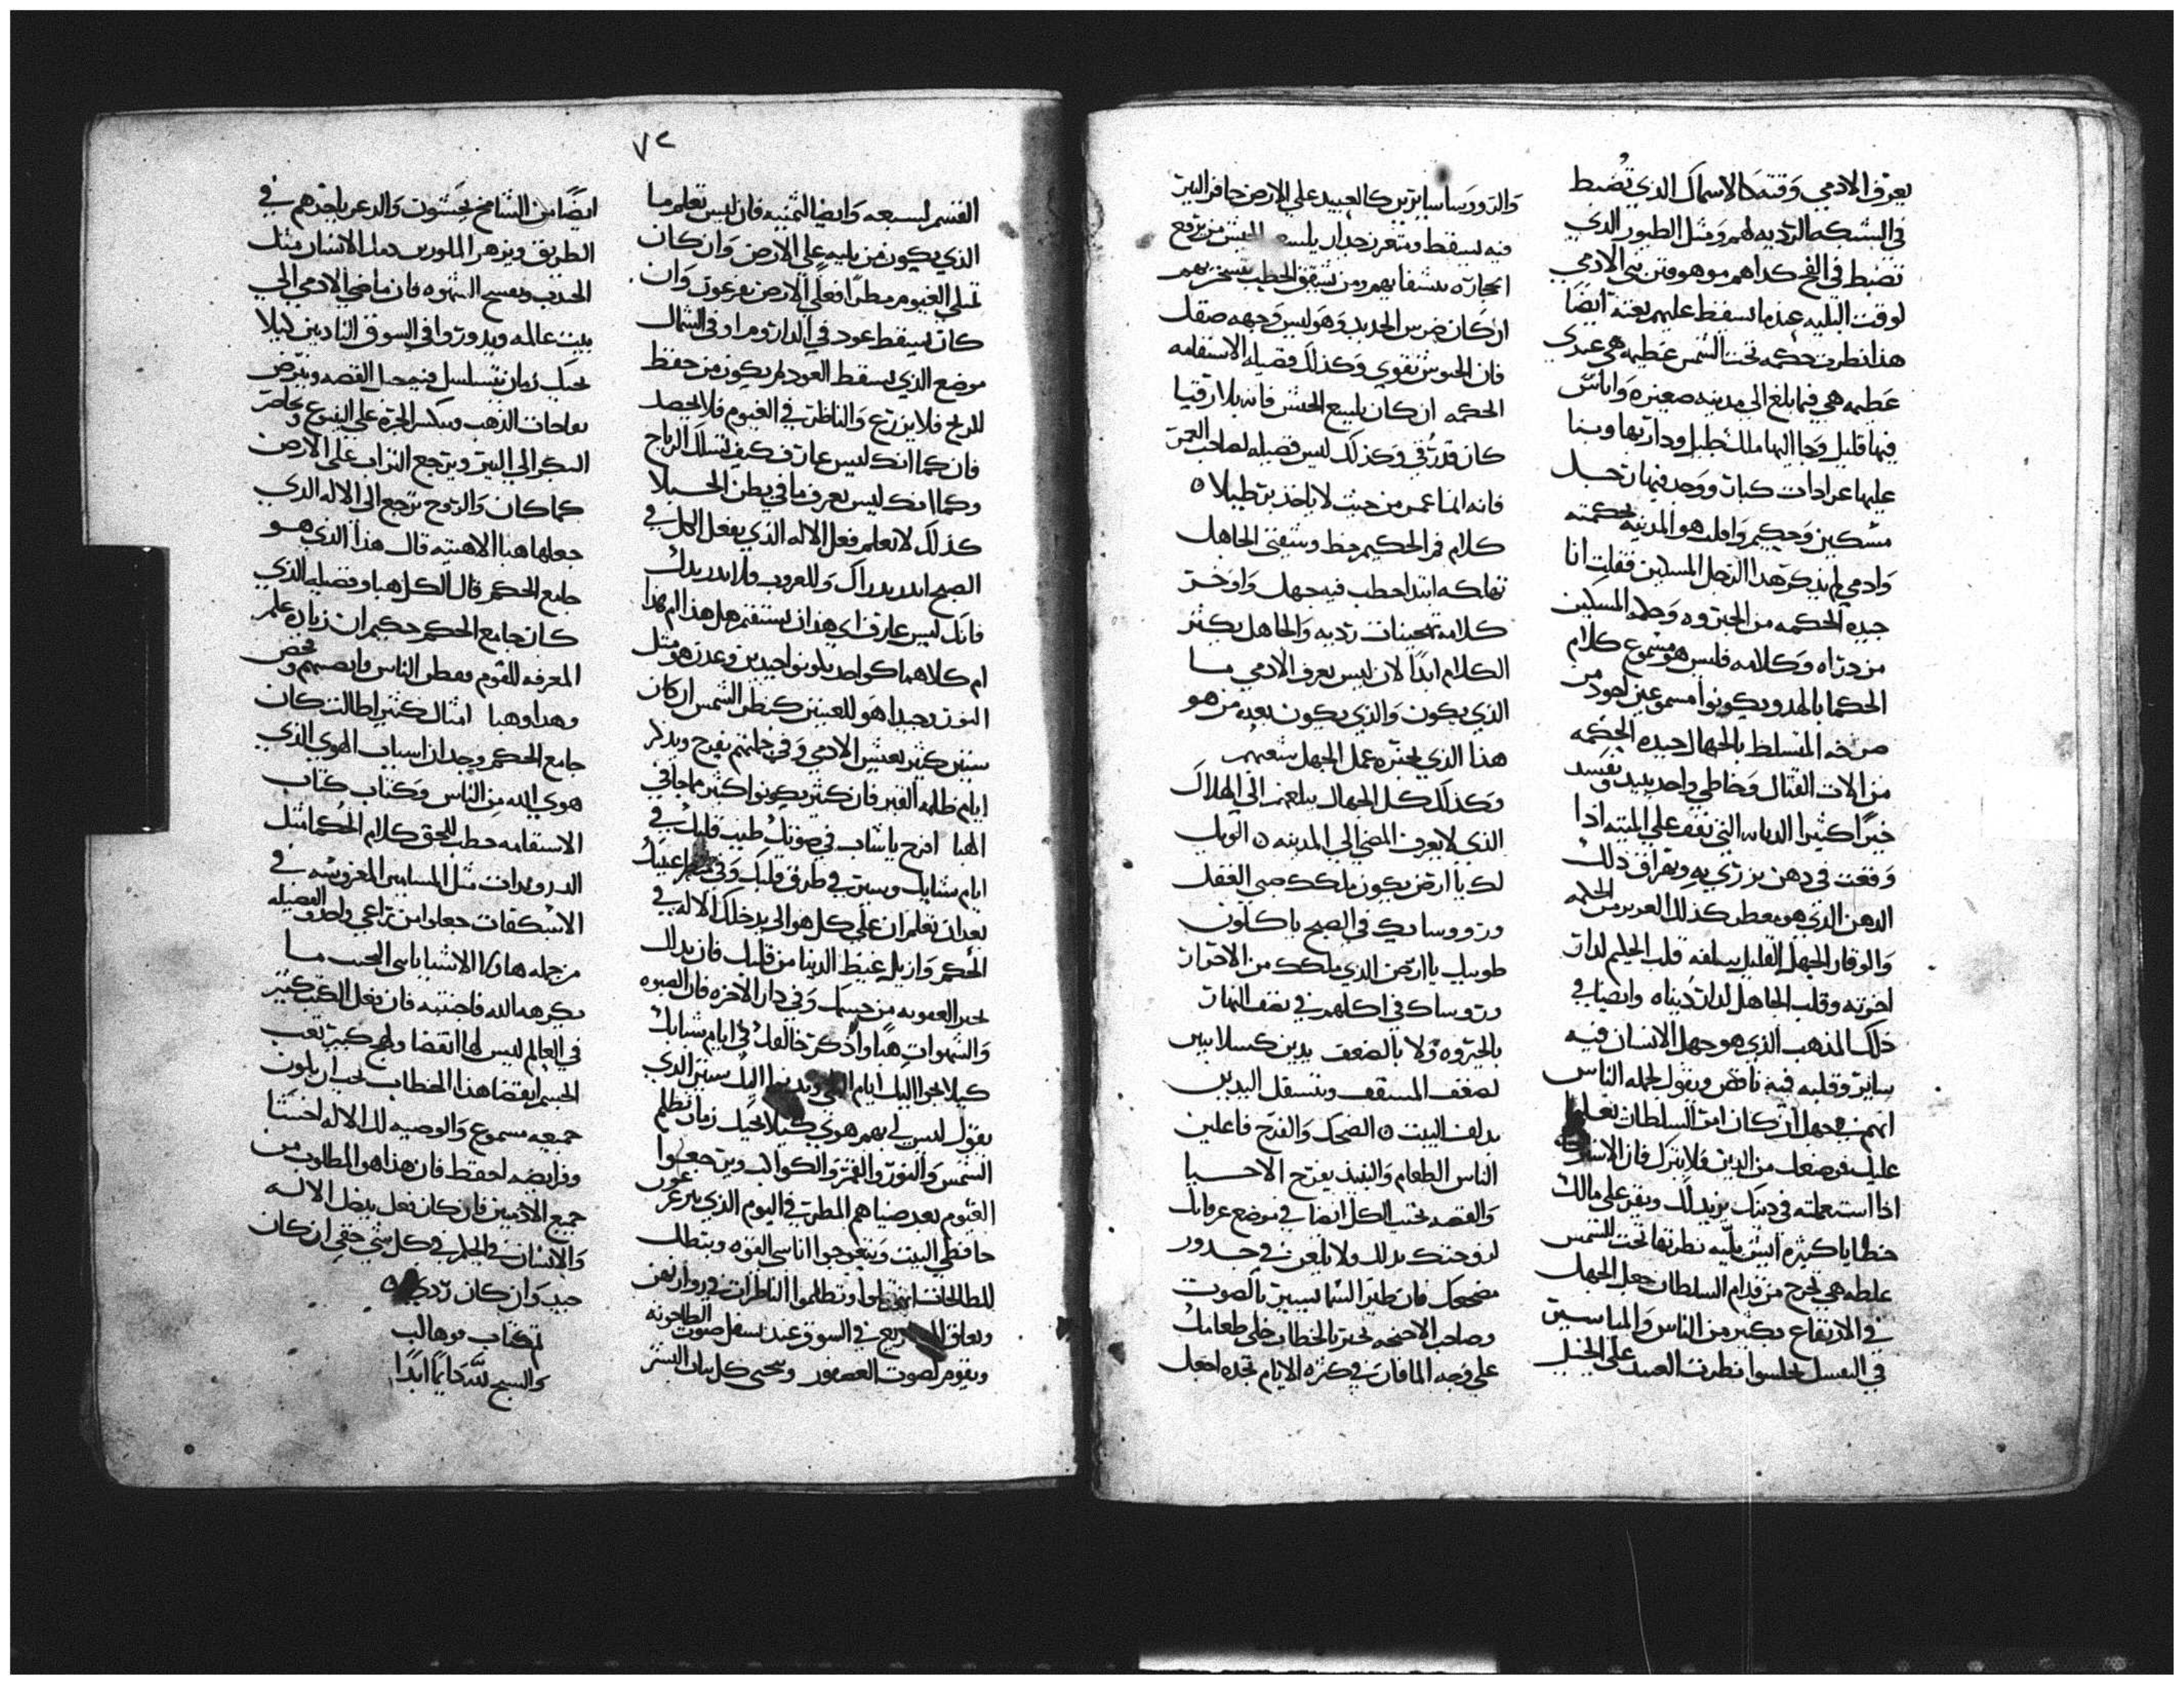 يعرف الادمي وقته كالاسماك الدي تضبط
في الشبكه الرديه لهم ومثل الطيور الذي
تضبط في الفخ كداهم موهوقين بني الادمي
لوقت البليه عندما تسقط عليهم بغتة ايضا
هذا نظرت حكمه تحت الشمس عظيمه هي عندي
عظيمه هي فيما بلغ الي مدينه صغيره واناس
فيها قليل وجا اليها ملك جليل ودار بها وبنا
عليها عرادات كبار ووجد فيها رجل
مسكين وحكيم وافلت هو المدينه بحكمته
وادمي لم يذكر هدا الرجل المسكين فقلت انا
جيده الحكمه من الجبروه وحكمه المسكين
مزدراه وكلامه فليس هو مسموع كلام
الحكما بالهدو يكونوا مسموعين اجود من
صرخه المتسلط بالجهال جيده الحكمه
من الات القتال وخاطي واحد يبيد ويفسد
خيرا كثيرا الدبابه التي تقف علي الميته اذا
وقعت في دهن بزري به ويهراق ذلك
الدهن الذي هو بعطر كذلك العزيز من الحكمه
والوقار الجهل القليل يسلفه قلب الحكيم لدار
اخرته وقلب الجاهل لدار دنياه وايضا في
ذلك المذهب الذي هو جهل الانسان فيه
ساير وقلبه فيه ناقص ويقول لجمله الناس
انهم جهل ان كان امر السلطان
عليك فموضعك من الدين فلا تترك فان
اذا استعملته في دينك يزيد لك ويغفر علي مالك
خطايا كثيره ايش بليه نظرتها تحت الشمس
غلطه هي تخرج من قدام السلطان جعل الجهل
في الارتفاع بكبير من الناس والمياسير
في التفسل يجلسوا نظرت العبيد علي الخيل
والرووسا سايرين كالعبيد علي الارض حافر البير
فيه يسقط ومتغرز جدار يلسع الحنش من يرفع
احجاره يتشفا بهم ومن يشقق الحطب يتسخر بهم
ان كان ضرس الحديد وهو ليس وجهه صقل
فان الجيوش تقوي وكذلك فضيله الاستقامه
الحكمه ان كان يلسع الحنش فانه بلا رقيا
كان قد رقي وكذلك ليس فضيله لصاحب الغمز
فانه انما غمز من حيث لا ياخذ برطيلا
كلام فم الحكيم حظ وشفتي الجاهل
تهلكه ابتدا حطب فيه جهل واوخر
كلامه تهجينات رديه والجاهل يكثر
الكلام ابدا لان ليس يعرف الادمي ما
الذي يكون والذي يكون بعده من هو
هذا الذي يخبره عمل الجهل يتعبهم
وكذلك كل الجهال يبلغهم الي الهلاك
الذي لا يعرف المضي الي المدينه الويل
لك يا ارض يكون ملكك صبي العقل
ورووساك في الصبح ياكلون
طوبيك يا ارض الذي ملكك من الاحرار
ورووساك في اكلهم في نصف النهار
بالجبروه ولا بالضعف بدين كسلا بين
لضعف المسقف وبتسقل اليدين
يدلف البيت الضحك والفرح فاعلين
الناس الطعام والنبيذ يفرح الاحيا
والفضه تجيب الكل ايضا في موضع عرفانك
لروحك بدلك ولا يلعن في خدور
مضجعك فان طير السما يسير بالصوت
وصاحب الاجنحه يخبر بالخطاب خلي طعامك
علي وجه الما فان في كثره الايام تجده اجعل
٧٢
القسم لسبعه وايضا لثمنيه فان ليس تعلم ما
الذي يكون من بليه علي الارض وان كان
تمتلي الغيوم مطرا فعلي الارض يفرغون وان
كان يسقط عود في الداروم او في الشمال
موضع الذي يسقط العود ثم يكون من حفظ
للريح فلا يزرع والناظر في الغيوم فلا يحصد
فان كما انك ليس عارف كيف تسلك الرياح
وكما انك ليس تعرف ما في بطن الحبلا
كذلك لا تعلم فعل الاله الذي يفعل الكل في
الصبح ابدر بدراك وللغروب فلا يدر يدك
فانك ليس عارف اي هذان يستقيم هل هذا ام هذا
ام كلاهما كواحد يكونوا جيدين وعدن هو مثل
النور وجيدا هو للعينين كنظر الشمس ان كان
سنين كثير يعيش الادمي وفي جملتهم يفرح ويذكر
ايام ظلمه القبر فان كثير يكونوا كثير ما جا في
الهبا افرح يا شاب في صوتك طيب قلبك في
ايام شبابك وسير في طرق قلبك وفي عينيك
بعد ان تعلم ان علي كل هولاي يدخلك الاله في
الحكم وازيل غيظ الدنيا من قلبك فان بدلك
تجير العقوبه من جسمك وفي دار الاخره فان الصبوه
والشهوات هبا واذكر خالقك في ايام شبابك
كيلا يجوا اليك ايام سنين الذي
يقول ليس لي بهم هوي كيلا يجيك زمان تظلم
الشمس والنور والقمر والكواكب ويرجعوا
الغيوم بعد ضياهم المطر في اليوم الذي يتزعزعون
حافظي البيت ويتعوجوا اناسي القوه ويتطلب
للطالحات وتظلموا الناظرات
في السوق عند تسفل صوت الطاحونه
ويقوم لصوت العصفور ويتحني كل بنات البشر
ايضا من الشامخ يخشون والدعر ياخذهم في
الطريق ويزهر الملورين الانسان مثل
الجندب ويفسخ الشهوه فان ماضي الادمي الي
بيت عالمه ويدوروا في السوق النادبين كيلا
تجيك زمان تتسلسل فيه حبل الفضه ويترض
الذهب وينكسر الجره علي الينبوع
البكر الي البير ويرجع التراب علي الارض
كما كان والروح ترجع الي الاله الدي
جعلها هبا الاهبيه قال هذا الذي هو
جامع الحكم قال الكل هبا وفضيله الذي
كان جامع الحكم حكيم ان زياده علم
المعرفه للقوم يعطي الناس وانصتهم وفحص
وهدا وهبا امثال كثير اطالت كان
جامع الحكم وجدان اسباب الهوي الذي
هوي الله من الناس وكتاب كتاب
الاستقامه خطب للحق كلام الحكما مثل
مثل المسامير المغروسه في
الاسكفات جعلوا من راعي واحد والفضيله
من جمله هاولا الاشيا يا بني العجب ما
يكرهه الله فاجتنبه فان فعل الكتب كثير
في العالم ليس لها انقضا ولهج كبير تعب
الجسم انقضا هذا الخطاب يجب ان يكون
جميعه مسموع والوصيه لك الاله اخشا
وفرايضه احفظ فان هذا هو المطلوب من
جميع الادميين فان كان فعل يبطل الاله
والانسان في الحكم في كل شي خفي ان كان
جيد وان كان ردي
تم كتاب موهالب
والسبح لله دايما ابدا